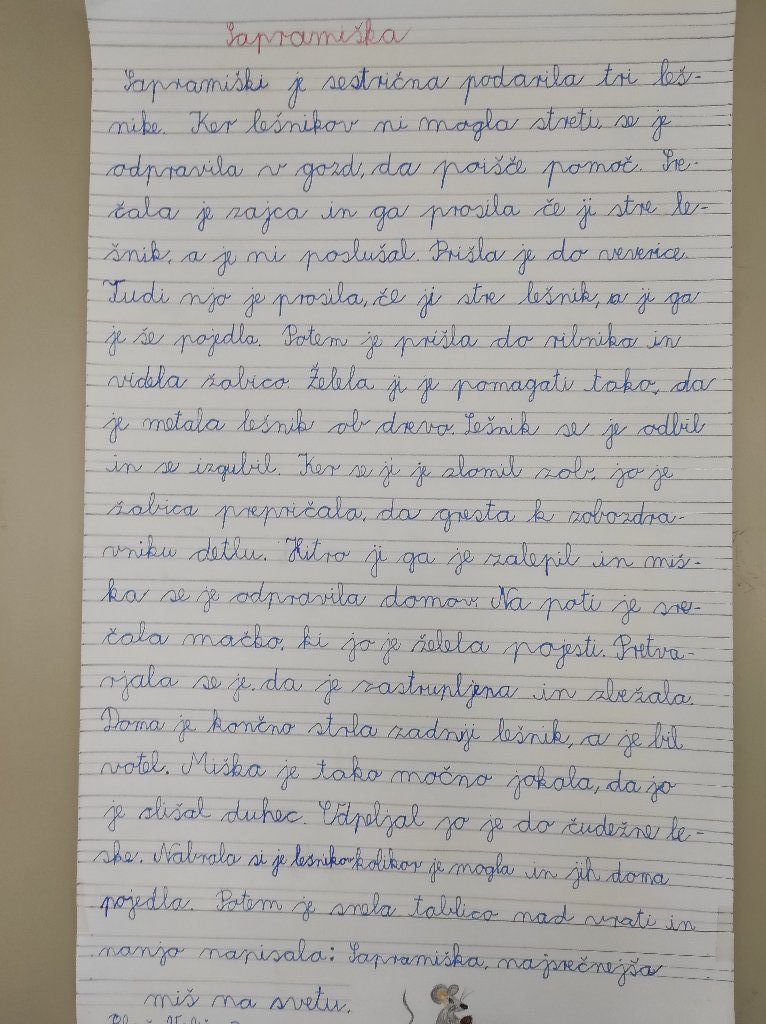 Sapramiška
Sapramiški je sestrična podarila tri leš-
nike. Ker lešnikov ni mogla streti, se je
odpravila v gozd, da poišče pomoč. Sre-
čala je zajca in ga prosila če ji stre le-
šnik, a je ni poslušal. Prišla je do veverice.
Tudi njo je prosila, če ji stre lešnik, a ji ga
je še pojedla. Potem je prišla do ribnika in
videla žabico. Želela ji je pomagati tako, da
je metala lešnik ob drevo. Lešnik se je odbil
in se izgubil. Ker se ji je zlomil zob, jo je
žabica prepričala, da gresta k zobozdra-
vniku detlu. Hitro ji ga je zalepil in miš-
ka se je odpravila domov. Na poti je sre-
čala mačko, ki jo je želela pojesti. Pretva-
rjala se je, da je zastrupljena in zbežala.
Doma je končno strla zadnji lešnik, a je bil
votel. Miška je tako močno jokala, da jo
je slišal duhec. Odpeljal jo je do čudežne le-
ske. Nabrala si je lešnikov kolikor je mogla in jih doma
pojedla. Potem je snela tablico nad vrati in
nanjo napisala: Sapramiška, najsrečnejša
miš na svetu.